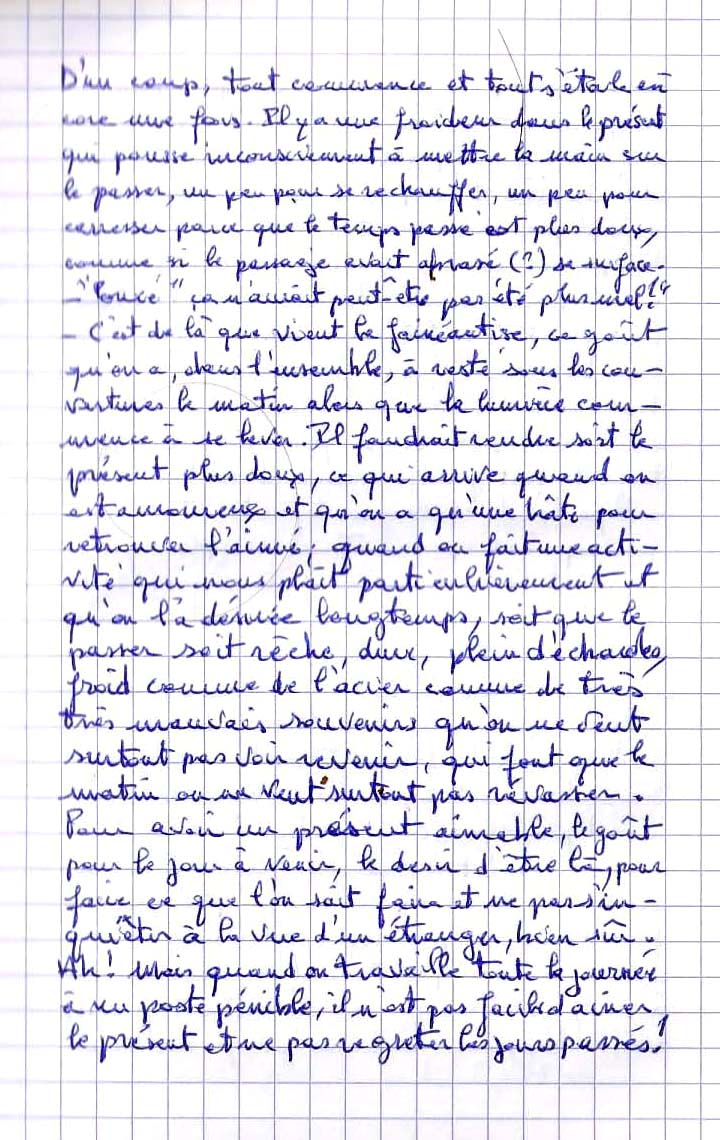 D'un coup, tout commence et tout s'étale en
core une fois. Il y a une froideur dans le présent
qui pousse inconsciemment à mettre la main sur
le passer, un peu pour se rechauffer, un peu pour
caresser parce que le temps passé est plus doux,
comme si le passage avait aprasé (?) sa surface.
– "Poncé" ça n'aurait peut-être pas été plus mal?"
– C'est de là que vient la fainéantise, ce goût
qu'on a, dans l'ensemble, à resté sous les cou–
vertures le matin alors que la lumière com–
mence à se lever. Il faudrait rendre soit le
présent plus doux, ce qui arrive quand on
est amoureux et qu'on a qu'une hâte pour
retrouver l'aimé; quand on fait une acti–
vité qui nous plaît particulièrement et
qu'on l'a désirée longtemps, soit que le
passer soit rêche, dur, plein d'échardes,
froid comme de l'acier comme de très
très mauvais souvenirs qu'on ne veut
surtout pas voir revenir, qui font que le
matin on ne veut surtout pas rêvasser.
Pour avoir un présent aimable, le goût
pour le jour à venir, le desir d'être là, pour
faire ce que l'on sait faire et ne pas s'in–
quiéter à la vue d'un étranger, bien sûr.
Ah! Mais quand on travaille toute la journée
à un poste pénible, il n'est pas facile d'aimer
le présent et ne pas regretter les jours passés!